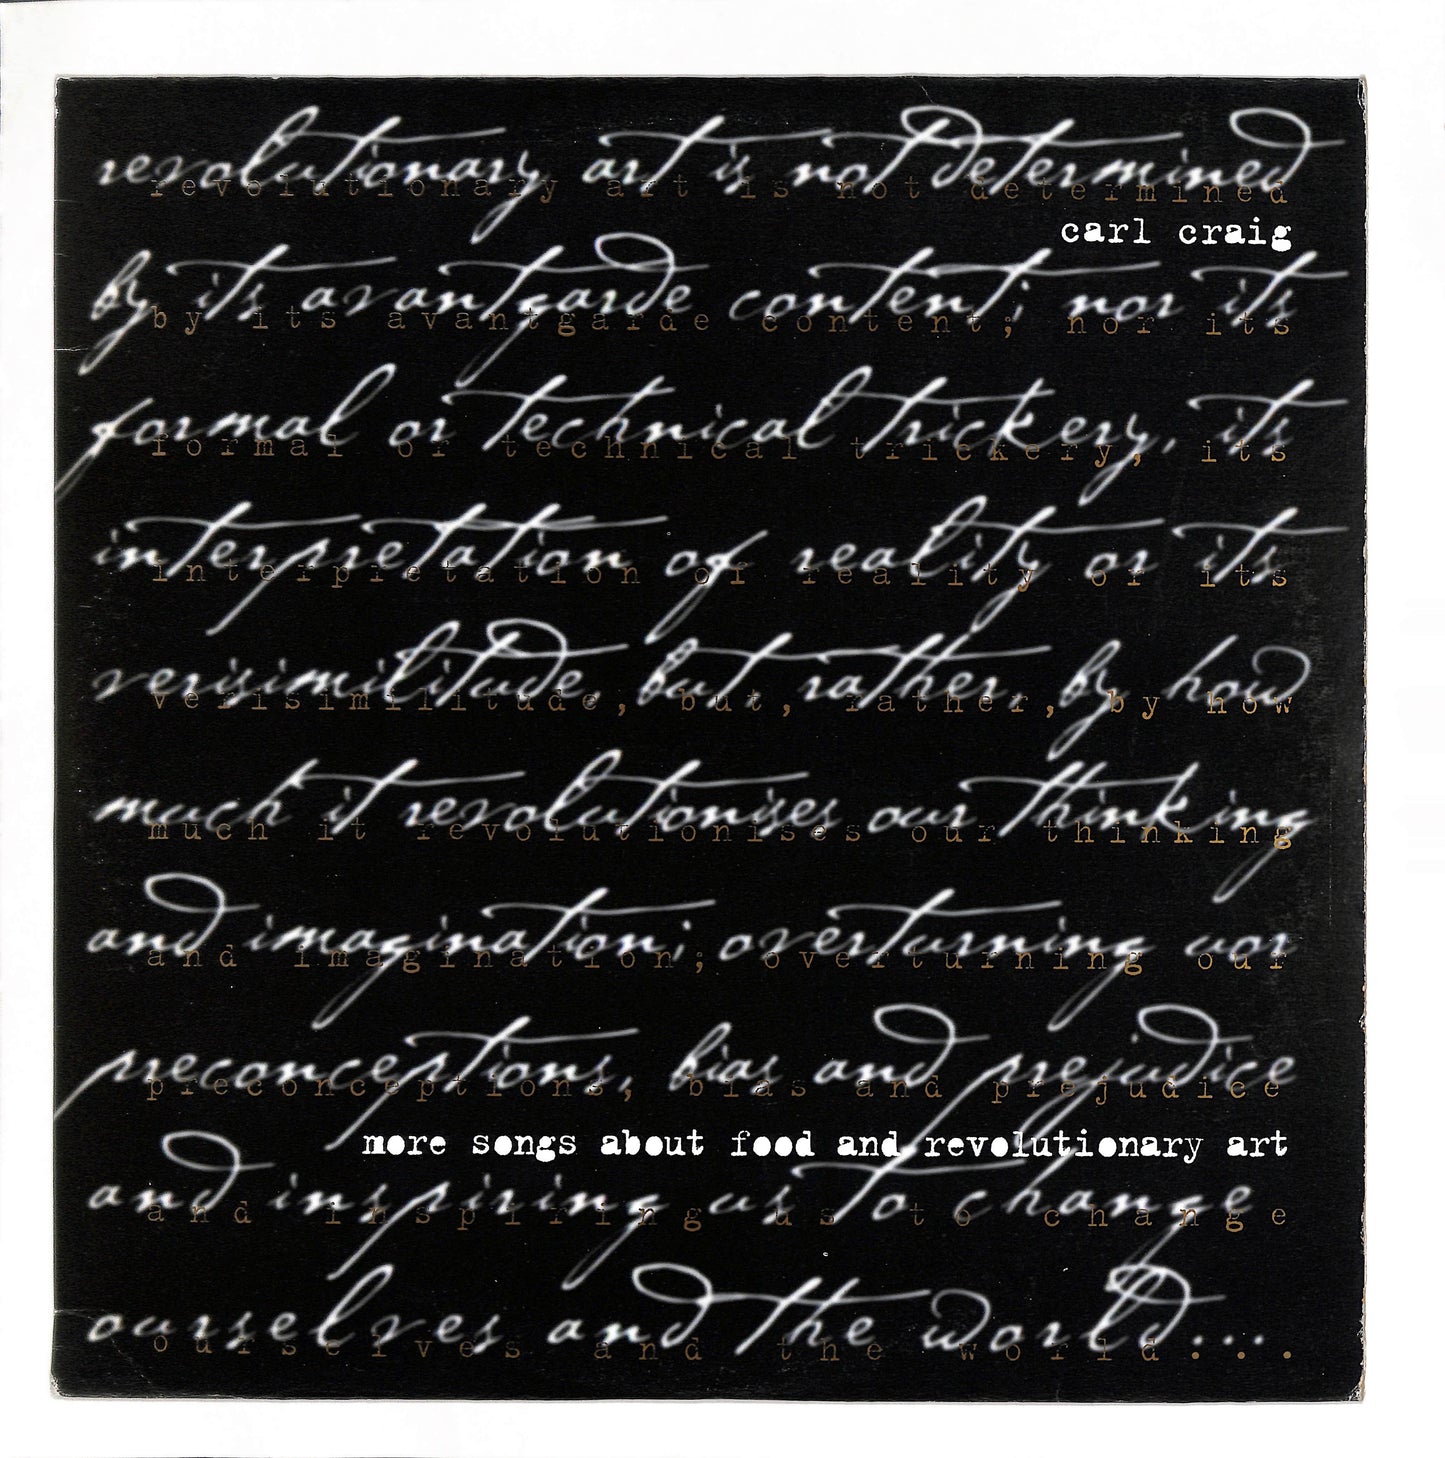 revolutionary art is not determined
revolutionary art is not determined
carl craig
by its avantgarde content; nor its
by its avantgarde content; nor its
formal or technical trickery, its
formal or technical trickery, its
interpretation of reality or its
interpretation of reality or its
verisimilitude, but, rather, by how
verisimilitude, but, rather, by how
much it revolutionises our thinking
much it revolutionises our thinking
and imagination; overturning uor
and imagination; overturning our
preconceptions, bias and prejudice
preconceptions, bias and prejudice
more songs about food and revolutionary art
and inspiring us to change
and inspiring us to change
ourselves and the world...
ourselves and the world...